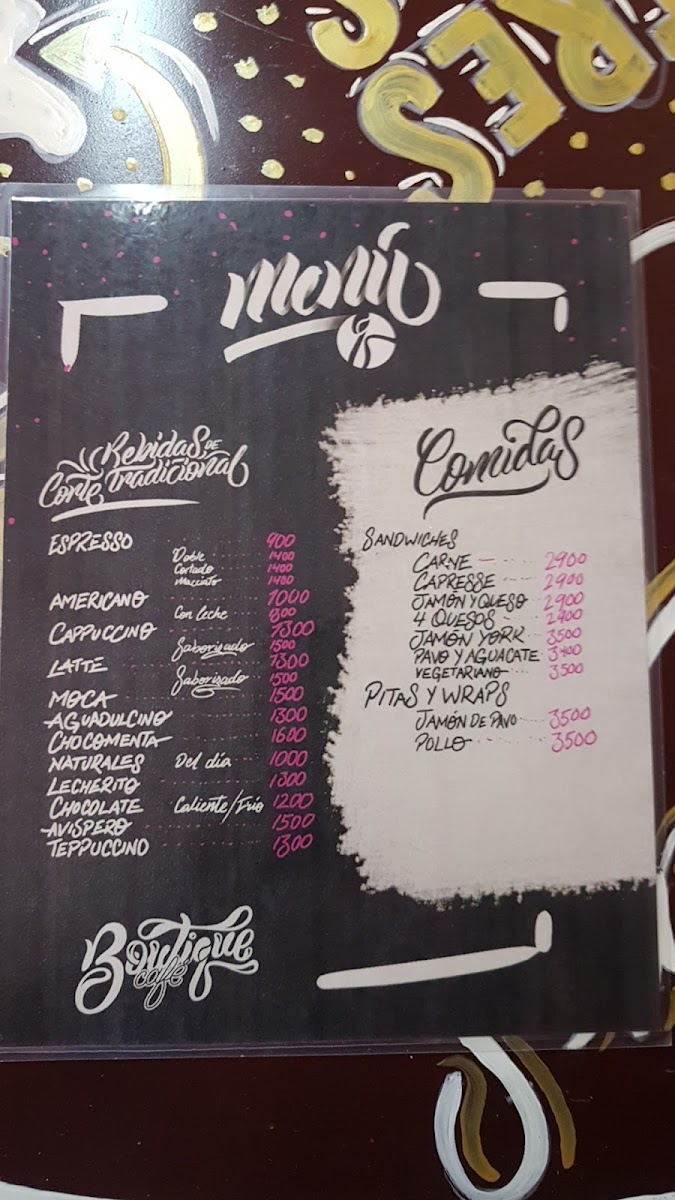 RES
Menú
Bebidas de
Corte Tradicional
ESPRESSO 900
Doble 1400
Cortado 1400
Macciato 1400
AMERICANO 1000
Con leche 1300
CAPPUCCINO 1300
Saborisado 1500
LATTE 1300
Saborisado 1500
MOCA 1500
AGUADULCINO 1300
CHOCOMENTA 1600
NATURALES Del día 1000
LECHERITO 1300
CHOCOLATE Caliente/Frío 1200
AVISPERO 1500
TEPPUCCINO 1300
Boutique
café
Comidas
SANDWICHES
CARNE 2900
CAPRESSE 2900
JAMÓN Y QUESO 2900
4 QUESOS 2900
JAMÓN YORK 3500
PAVO Y AGUACATE 3400
VEGETARIANO 3500
PITAS Y WRAPS
JAMÓN DE PAVO 3500
POLLO 3500